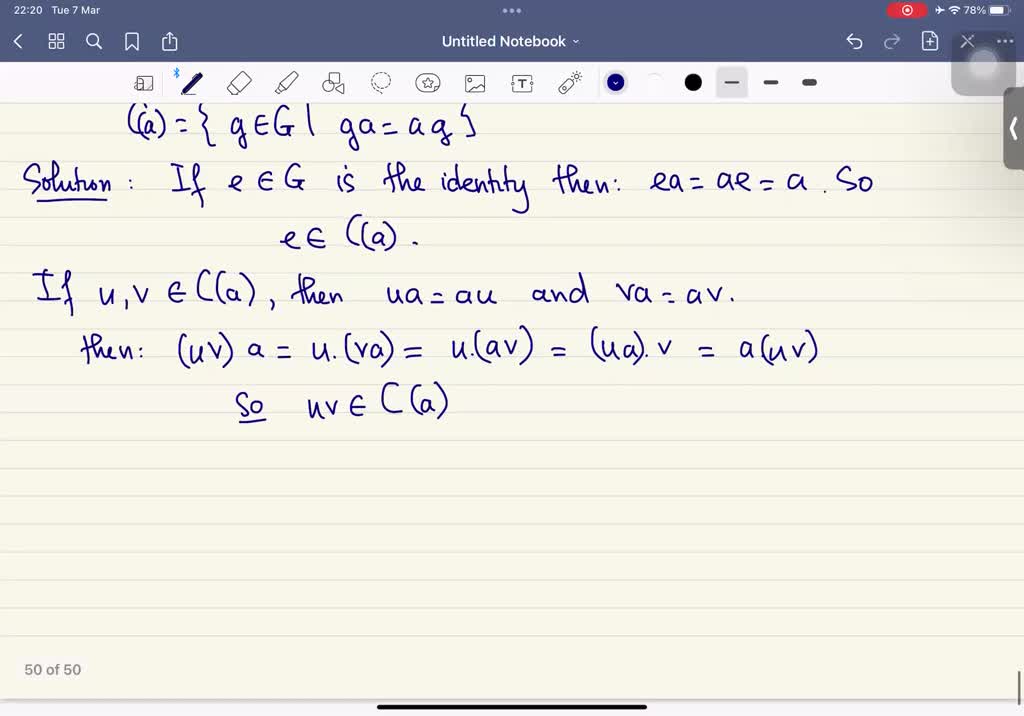 22:20 Tue 7 Mar
78%
Untitled Notebook
C(a) = { g ∈ G | ga = ag }
Solution : If e ∈ G is the identity then: ea = ae = a . So
e ∈ C(a) .
If u, v ∈ C(a), then ua = au and va = av.
then: (uv) a = u.(va) = u.(av) = (ua). v = a(uv)
So uv ∈ C(a)
50 of 50